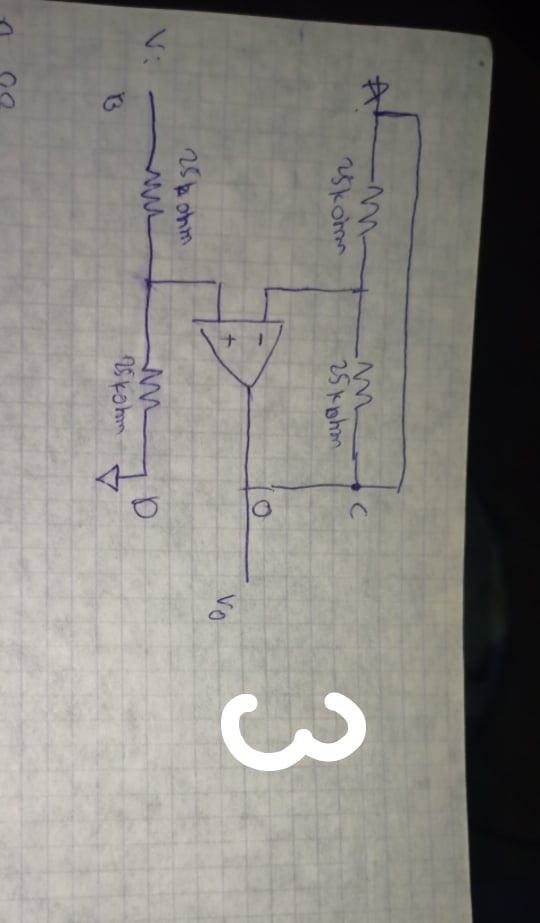 A
25kohm
25kohm
C
-
+
O
Vo
Vi
B
25kohm
25kohm
D
3